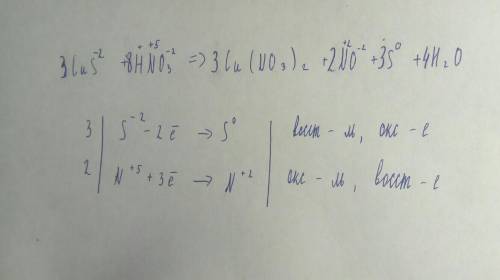 3CuS⁻² + 8H⁺N⁺⁵O₃⁻² => 3Cu(NO₃)₂ + 2N⁺²O⁻² + 3S⁰ + 4H₂O
3 | S⁻² - 2ē → S⁰ | восст-ль, окс-е
2 | N⁺⁵ + 3ē → N⁺² | окс-ль, восст-е